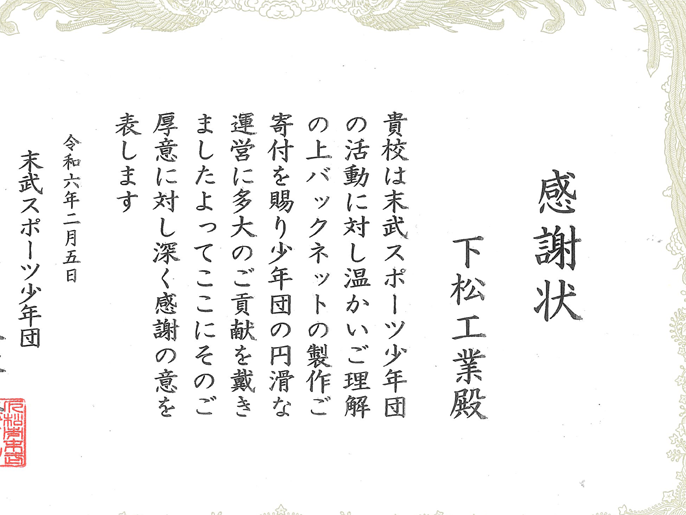 感謝状
下松工業殿
貴校は末武スポーツ少年団
の活動に対し温かいご理解
の上バックネットの製作ご
寄付を賜り少年団の円滑な
運営に多大のご貢献を戴き
ましたよってここにそのご
厚意に対し深く感謝の意を
表します
令和六年二月五日
末武スポーツ少年団